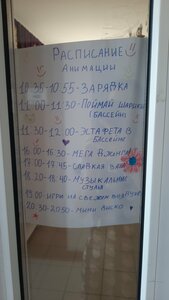 Расписание
Анимации
10:35-10:55-Зарядка
11:00-11:30-Поймай шарик
(бассейн)
11:30-12:00-Эстафета в
бассейне
16:00-16:30-Мега
17:00-17:45-Сладкая вата
18:20-18:40-Музыкальные
стулья
19:00-Игры на свежем воздухе
20:30-20:50-Мини диско